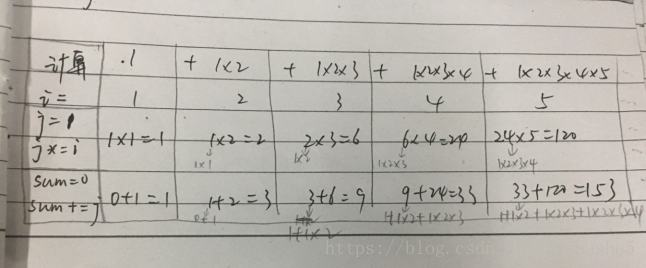 计算 1 + 1×2 + 1×2×3 + 1×2×3×4 + 1×2×3×4×5
i= 1 2 3 4 5
j=1
j*=i 1×1=1 1×2=2 2×3=6 6×4=24 24×5=120
1×1 1×2×3 1×2×3×4
sum=0
sum+=j 0+1=1 1+2=3 3+6=9 9+24=33 33+120=153
0+1 1+1×2+1×2×3 1+1×2+1×2×3+1×2×3×4
1+1×2
https://blog.csdn